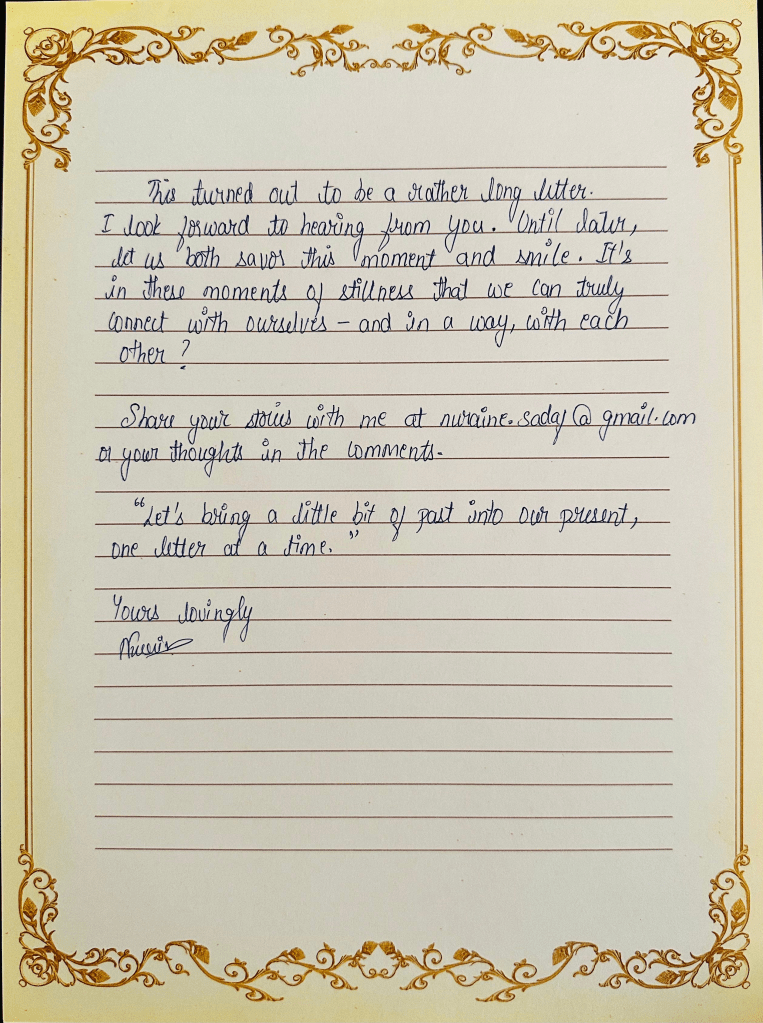 This turned out to be a rather long letter.
I look forward to hearing from you. Until later,
let us both savor this moment and smile. It's
in these moments of stillness that we can truly
connect with ourselves – and in a way, with each
other?
Share your stories with me at nuraine.sadaf@gmail.com
or your thoughts in the comments.
"Let's bring a little bit of past into our present,
one letter at a time."
Yours lovingly